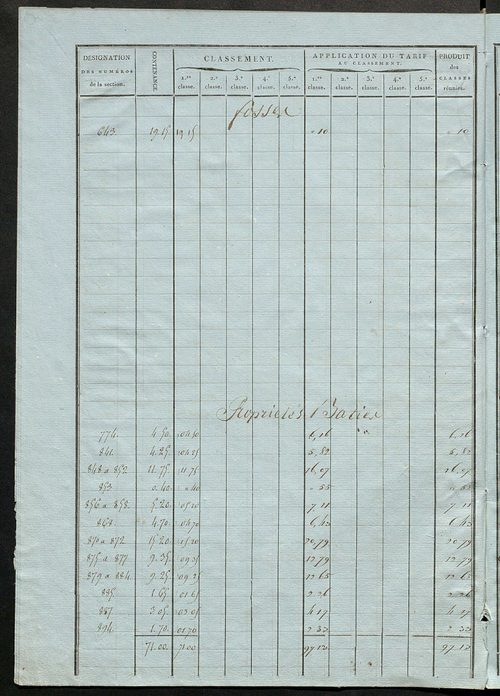 DESIGNATION DES NUMÉROS de la section. CONTENANCE. CLASSEMENT. APPLICATION DU TARIF AU CLASSEMENT. PRODUIT des CLASSES réunies.
1.re classe. 2.e classe. 3.e classe. 4.e classe. 5.e classe. 1.re classe. 2.e classe. 3.e classe. 4.e classe. 5.e classe.
fosses
643. 19.15 19 15 " 10 " 10
Propriétés Baties
774. 4.50. 04.50 6,16 6,16
841. 4.25. 04.25 5,82 5,82
848 a 852 11.75. 11.75 16,07 16,07
853 0.40. 0.40 " 55 " 55
856 a 858. 5.20. 05.20 7,11 7,11
868. 4.70. 04.70 6,43 6,43
870 a 872. 15.20. 15.20 20,79 20,79
875 a 877. 9.35. 09.35 12,79 12,79
879 a 884. 9.25. 09.25 12,65 12,65
885. 1.65 01.65 2,26 2,26
887. 3.05. 03.05 4,17 4,17
894. 1.70. 01.70 2,33 2,33
71.00. 71.00 97,12 97,12